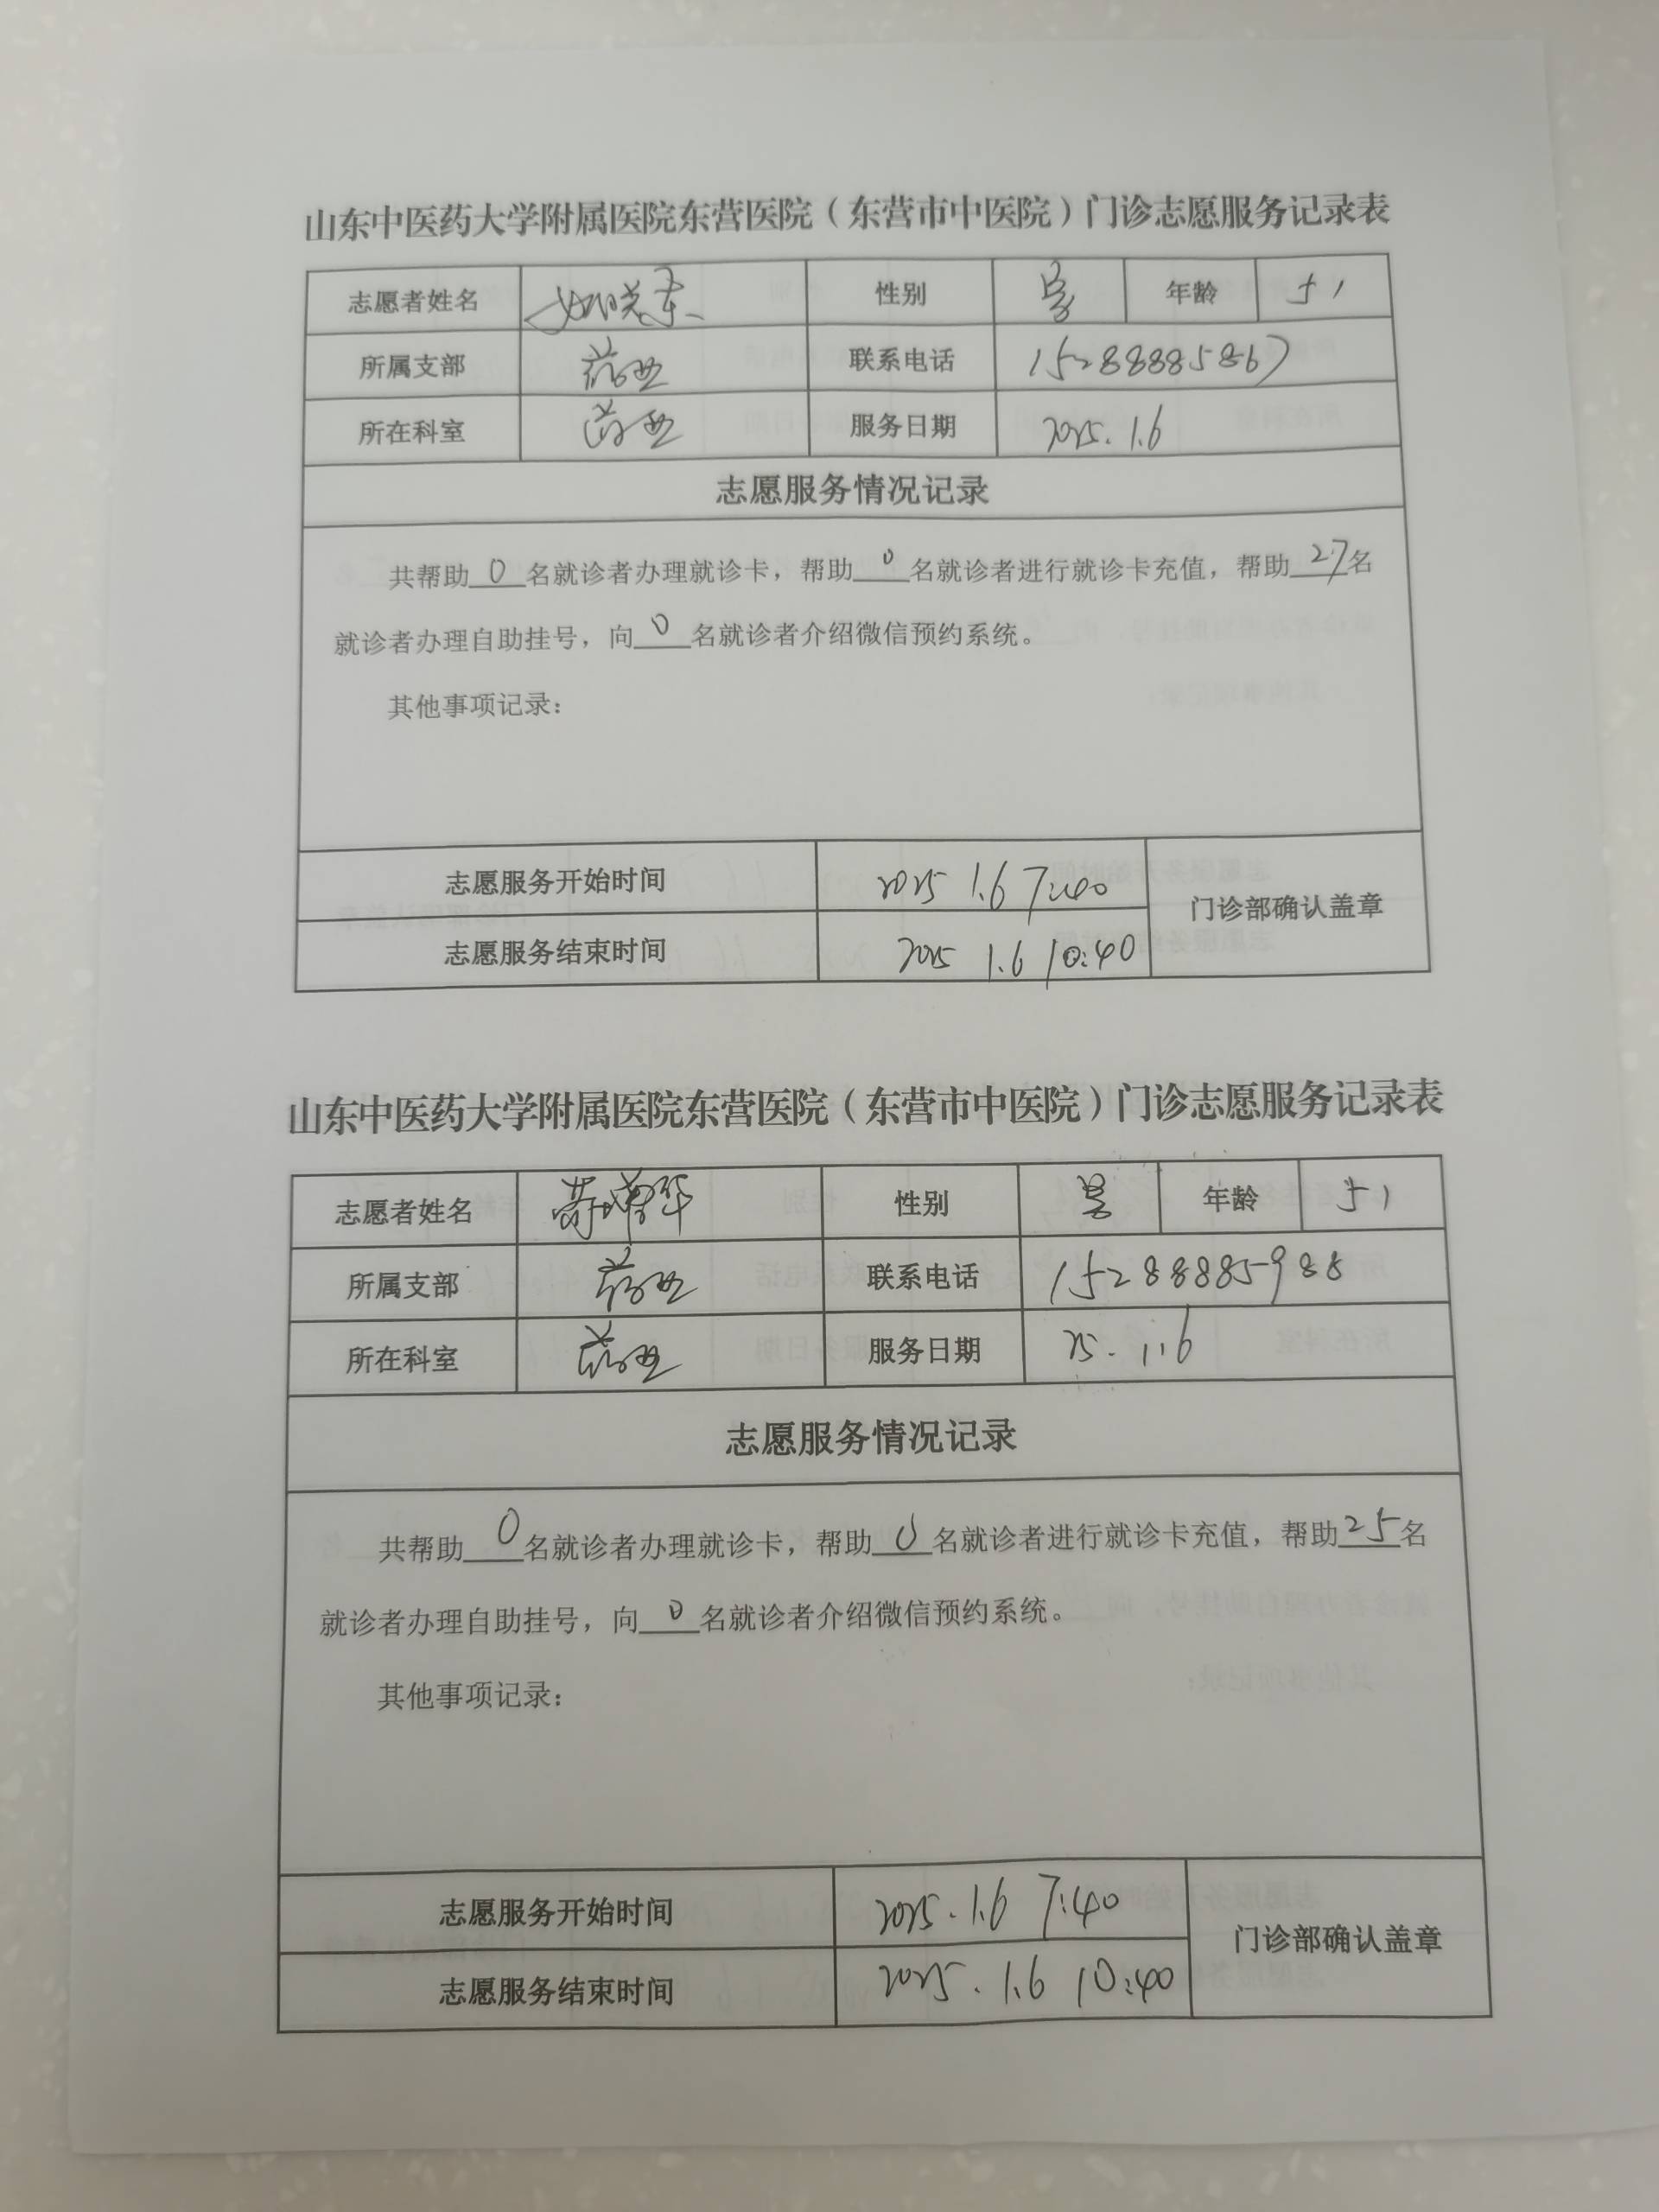 山东中医药大学附属医院东营医院（东营市中医院）门诊志愿服务记录表
志愿者姓名 性别 男 年龄 51
所属支部 联系电话 15288885867
所在科室 服务日期 2025.1.6
志愿服务情况记录
共帮助0名就诊者办理就诊卡，帮助0名就诊者进行就诊卡充值，帮助27名
就诊者办理自助挂号，向0名就诊者介绍微信预约系统。
其他事项记录：
志愿服务开始时间 2025 1.6 7:40
门诊部确认盖章
志愿服务结束时间 2025 1.6 10:40
山东中医药大学附属医院东营医院（东营市中医院）门诊志愿服务记录表
志愿者姓名 性别 男 年龄 51
所属支部 联系电话 15288885988
所在科室 服务日期 25.1.6
志愿服务情况记录
共帮助0名就诊者办理就诊卡，帮助0名就诊者进行就诊卡充值，帮助25名
就诊者办理自助挂号，向0名就诊者介绍微信预约系统。
其他事项记录：
志愿服务开始时间 2025.1.6 7:40
门诊部确认盖章
志愿服务结束时间 2025.1.6 10:40